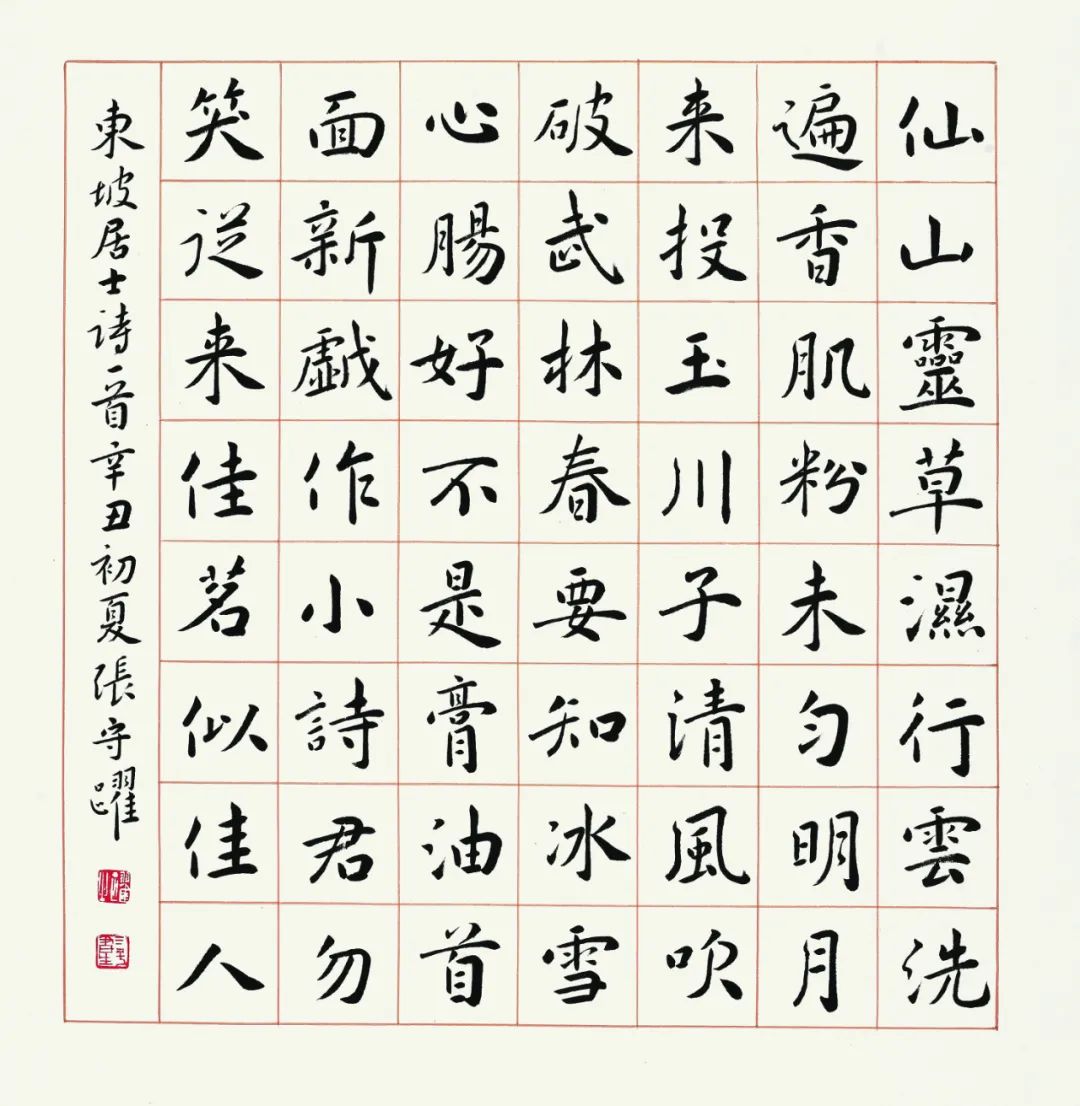 仙山靈草濕行雲洗
遍香肌粉未勻明月
来投玉川子清風吹
破武林春要知冰雪
心腸好不是膏油首
面新戯作小詩君勿
笑從来佳茗似佳人
東坡居士詩一首辛丑初夏張守躍